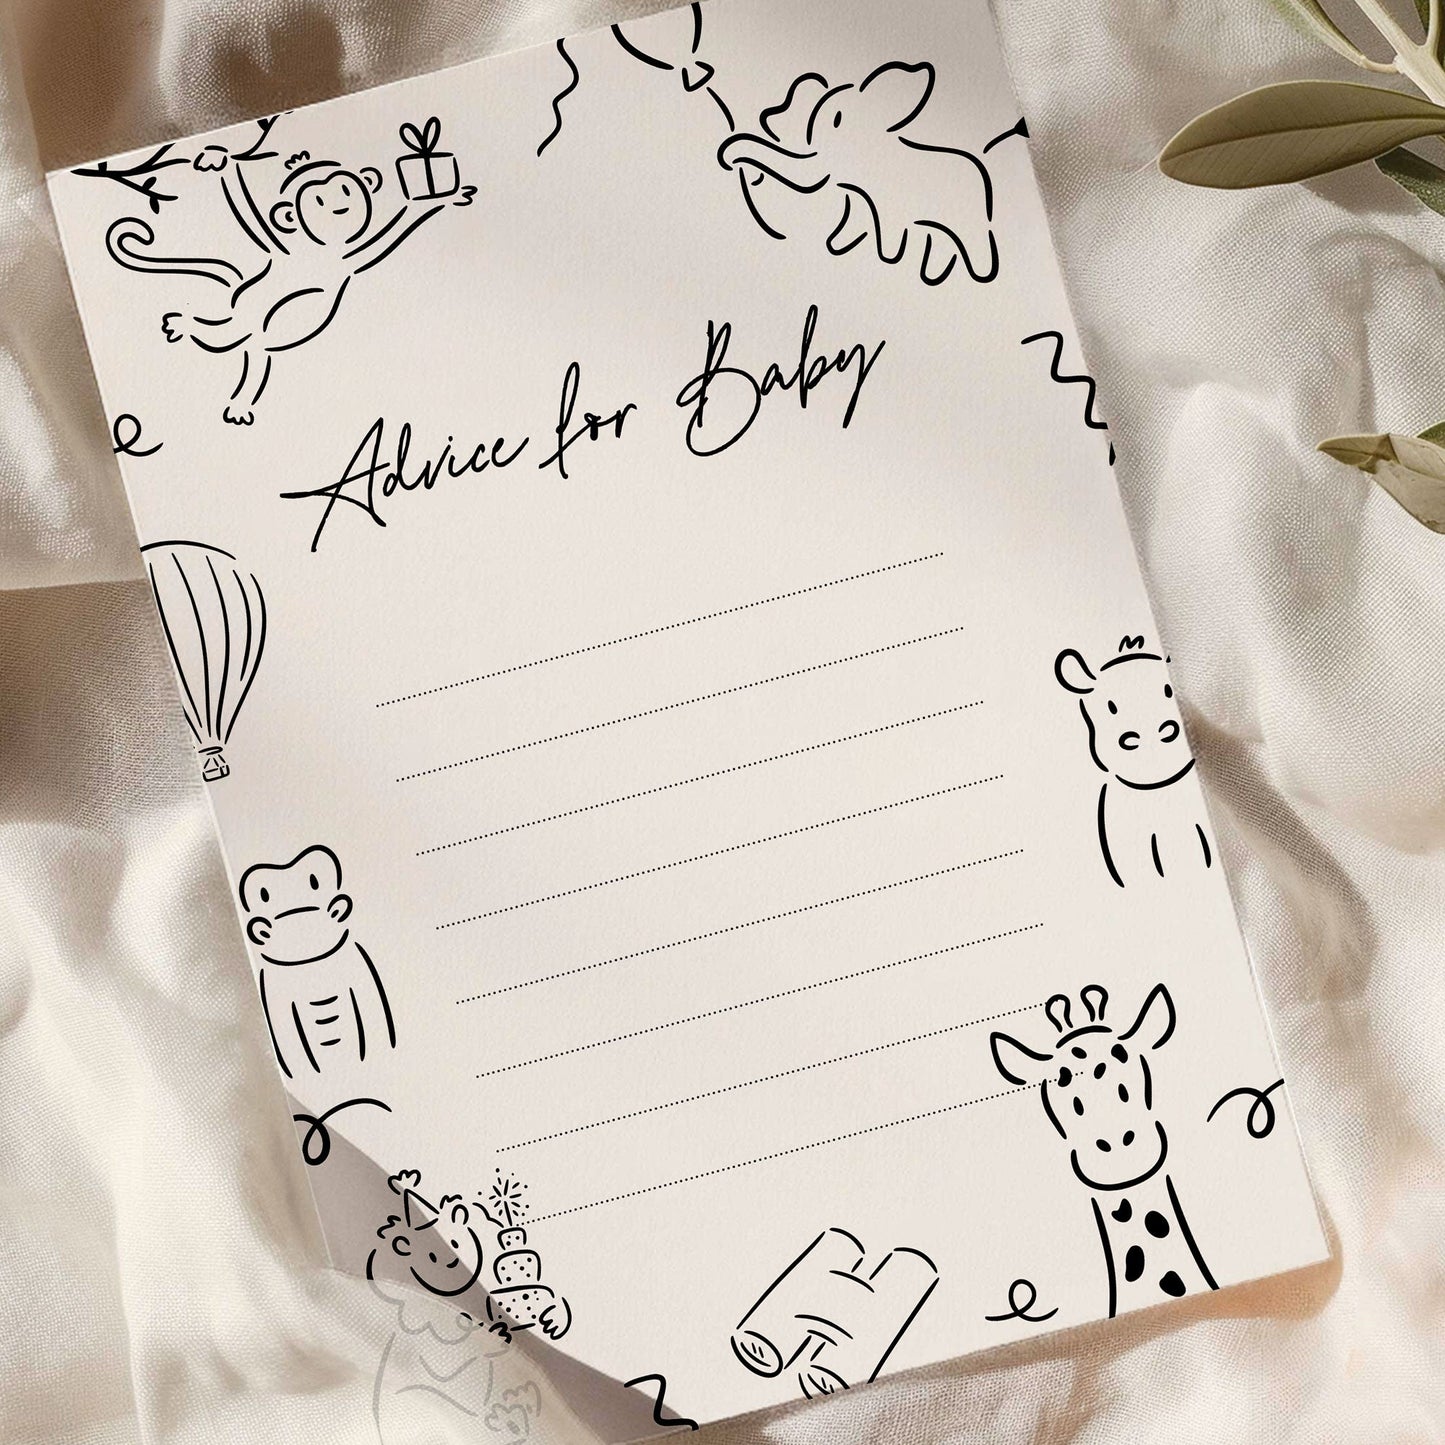 Advice for Baby